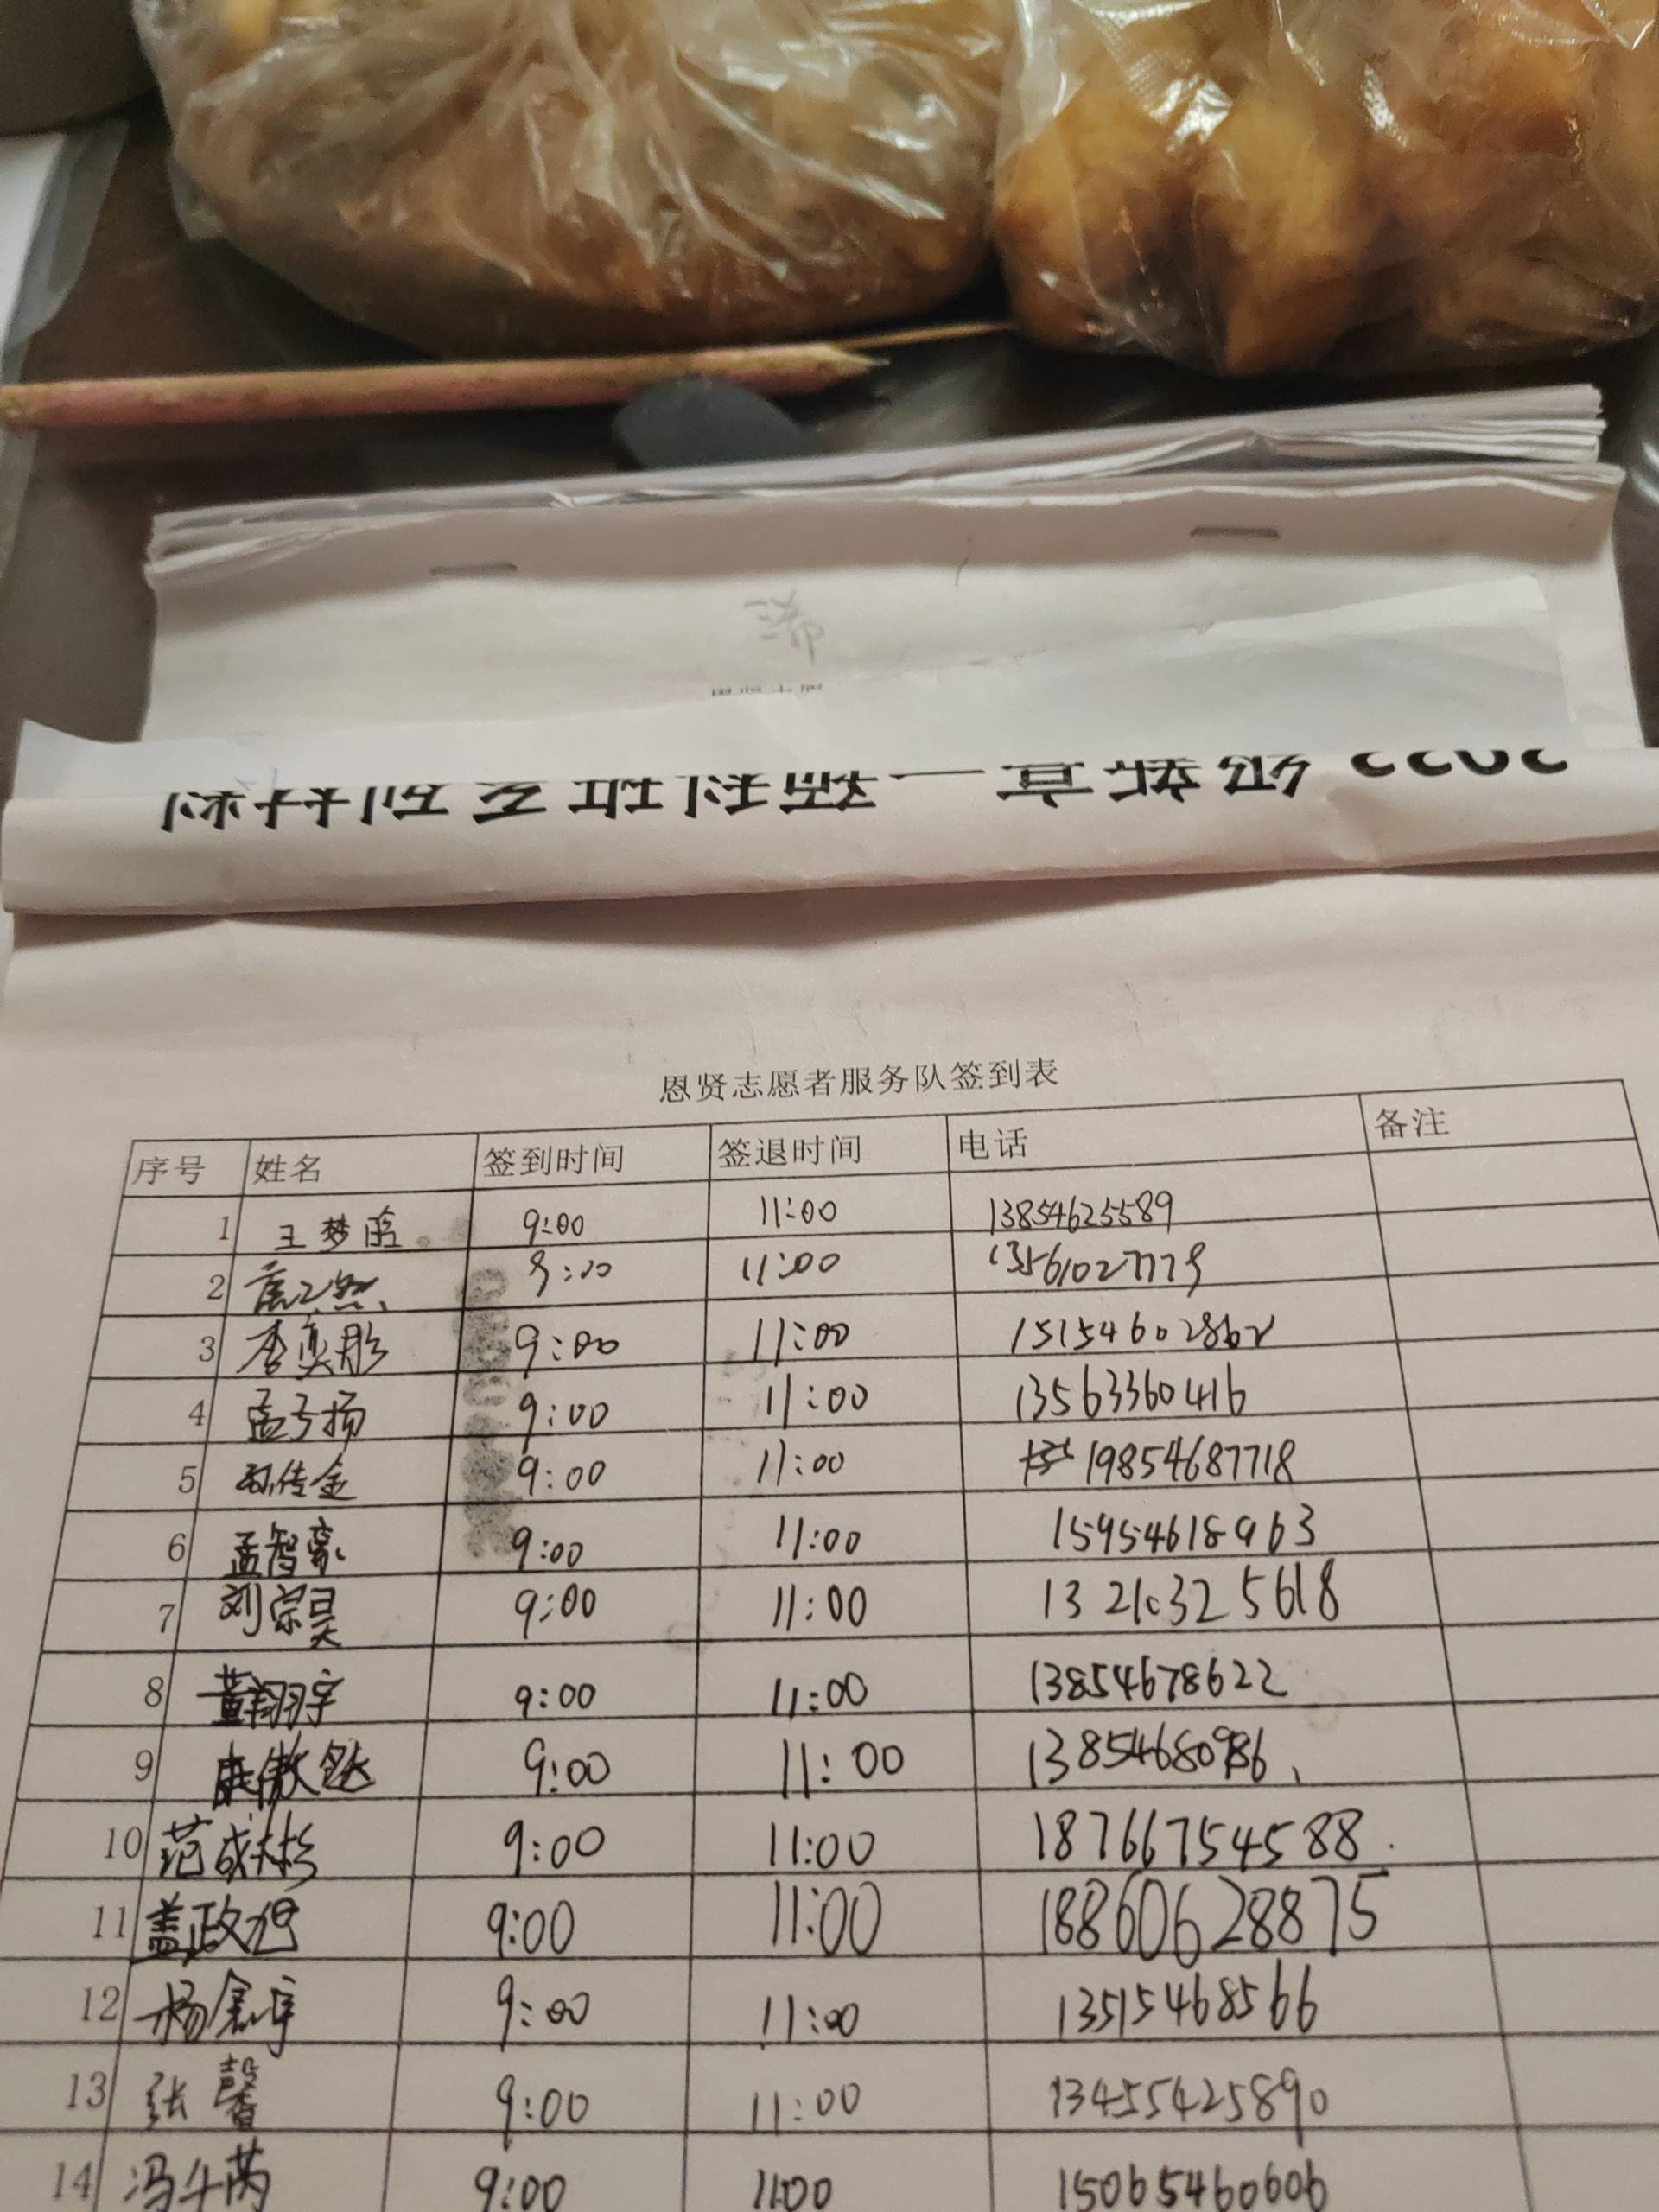 恩贤志愿者服务队签到表
序号 姓名 签到时间 签退时间 电话 备注
1 王梦晗 9:00 11:00 13854625589
2 9:00 11:00 13561027779
3 李奕彤 9:00 11:00 15154602862
4 孟子扬 9:00 11:00 13563360416
5 孙传金 9:00 11:00 19854687718
6 孟智豪 9:00 11:00 15954618963
7 刘宗昊 9:00 11:00 13210325618
8 黄翔宇 9:00 11:00 13854678622
9 9:00 11:00 13854680986
10 范成彬 9:00 11:00 18766754588
11 盖政旭 9:00 11:00 18860628875
12 杨 宇 9:00 11:00 13515468566
13 张馨 9:00 11:00 13455425890
14 冯 芮 9:00 11:00 15065460606